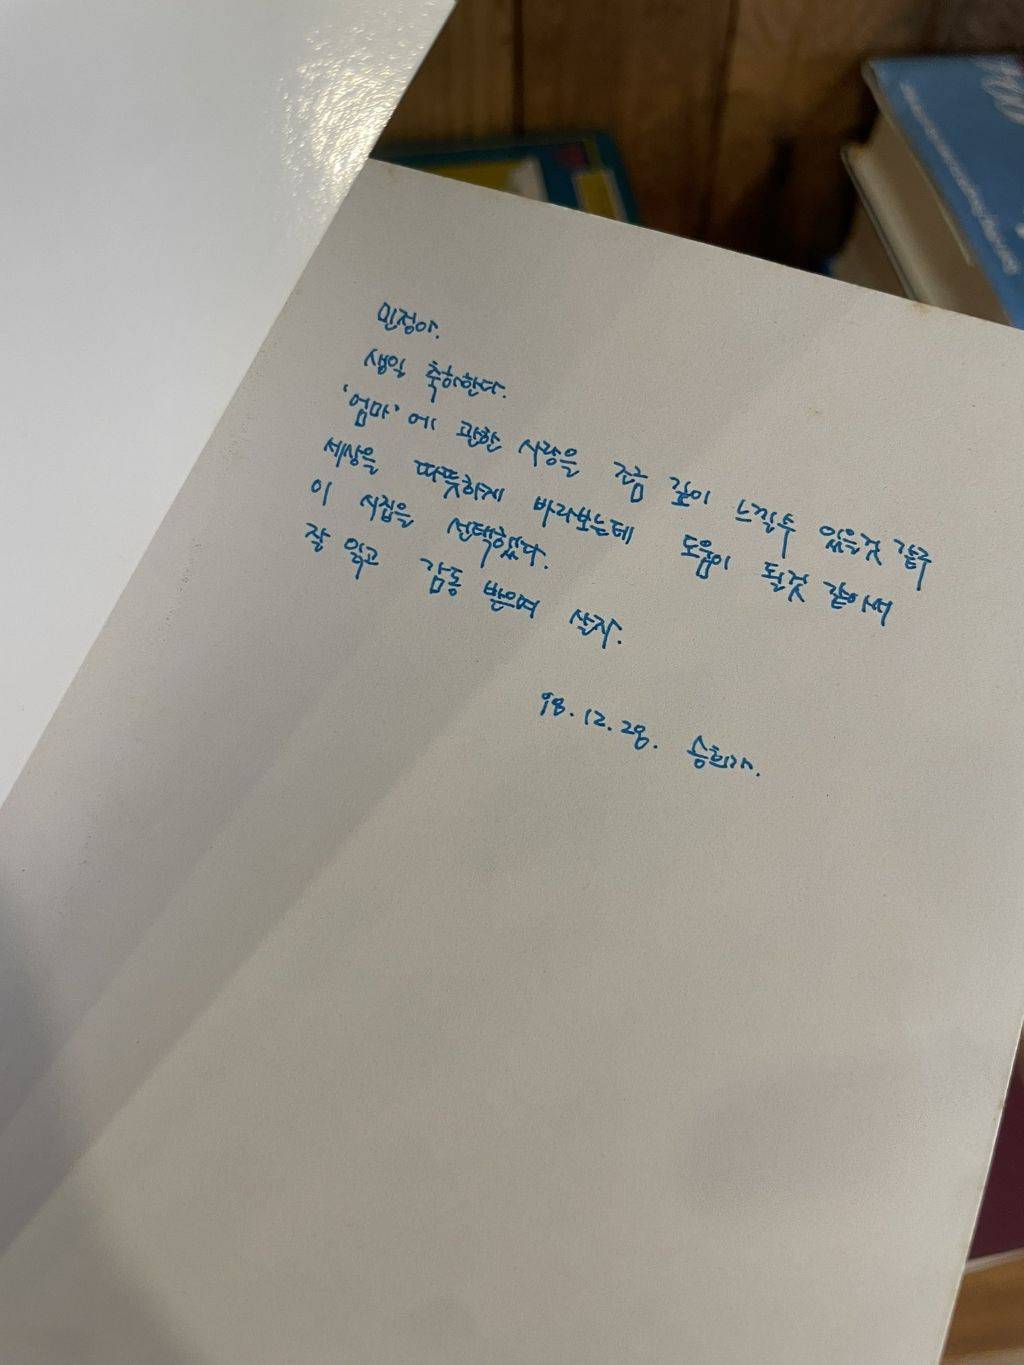 민정아.
생일 축하한다.
'엄마'에 관한 사랑을 조금 깊이 느낄수 있을것 같구
세상을 따뜻하게 바라보는데 도움이 될것 같아서
이 시집을 선택했다.
잘 읽고 감동 받으며 살자.
98. 12. 28. 승희가.